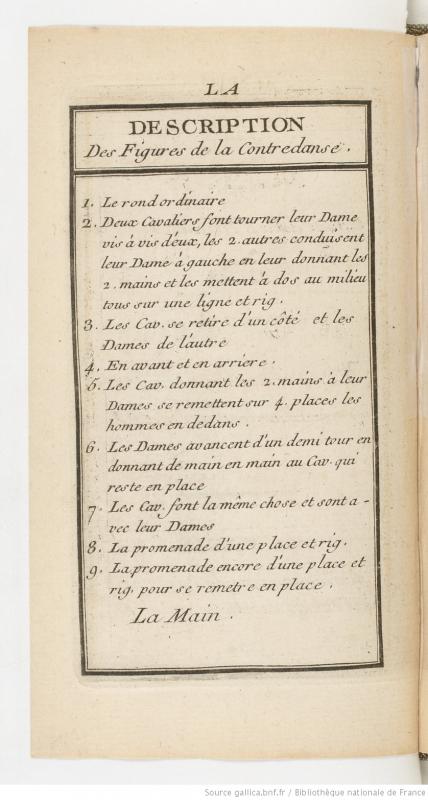 LA
DESCRIPTION
Des Figures de la Contredanse.
1. Le rond ordinaire
2. Deux Cavaliers font tourner leur Dame
vis à vis d'eux, les 2. autres conduisent
leur Dame à gauche en leur donnant les
2. mains et les mettent à dos au milieu
tous sur une ligne et rig.
3. Les Cav. se retire d'un côté et les
Dames de l'autre
4. En avant et en arriere.
5. Les Cav. donnant les 2. mains à leur
Dames se remettent sur 4. places les
hommes en dedans.
6. Les Dames avancent d'un demi tour en
donnant de main en main au Cav. qui
reste en place
7. Les Cav. font la même chose et sont a-
vec leur Dames
8. La promenade d'une place et rig.
9. La promenade encore d'une place et
rig. pour se remetre en place.
La Main.
Source gallica.bnf.fr / Bibliothèque nationale de France